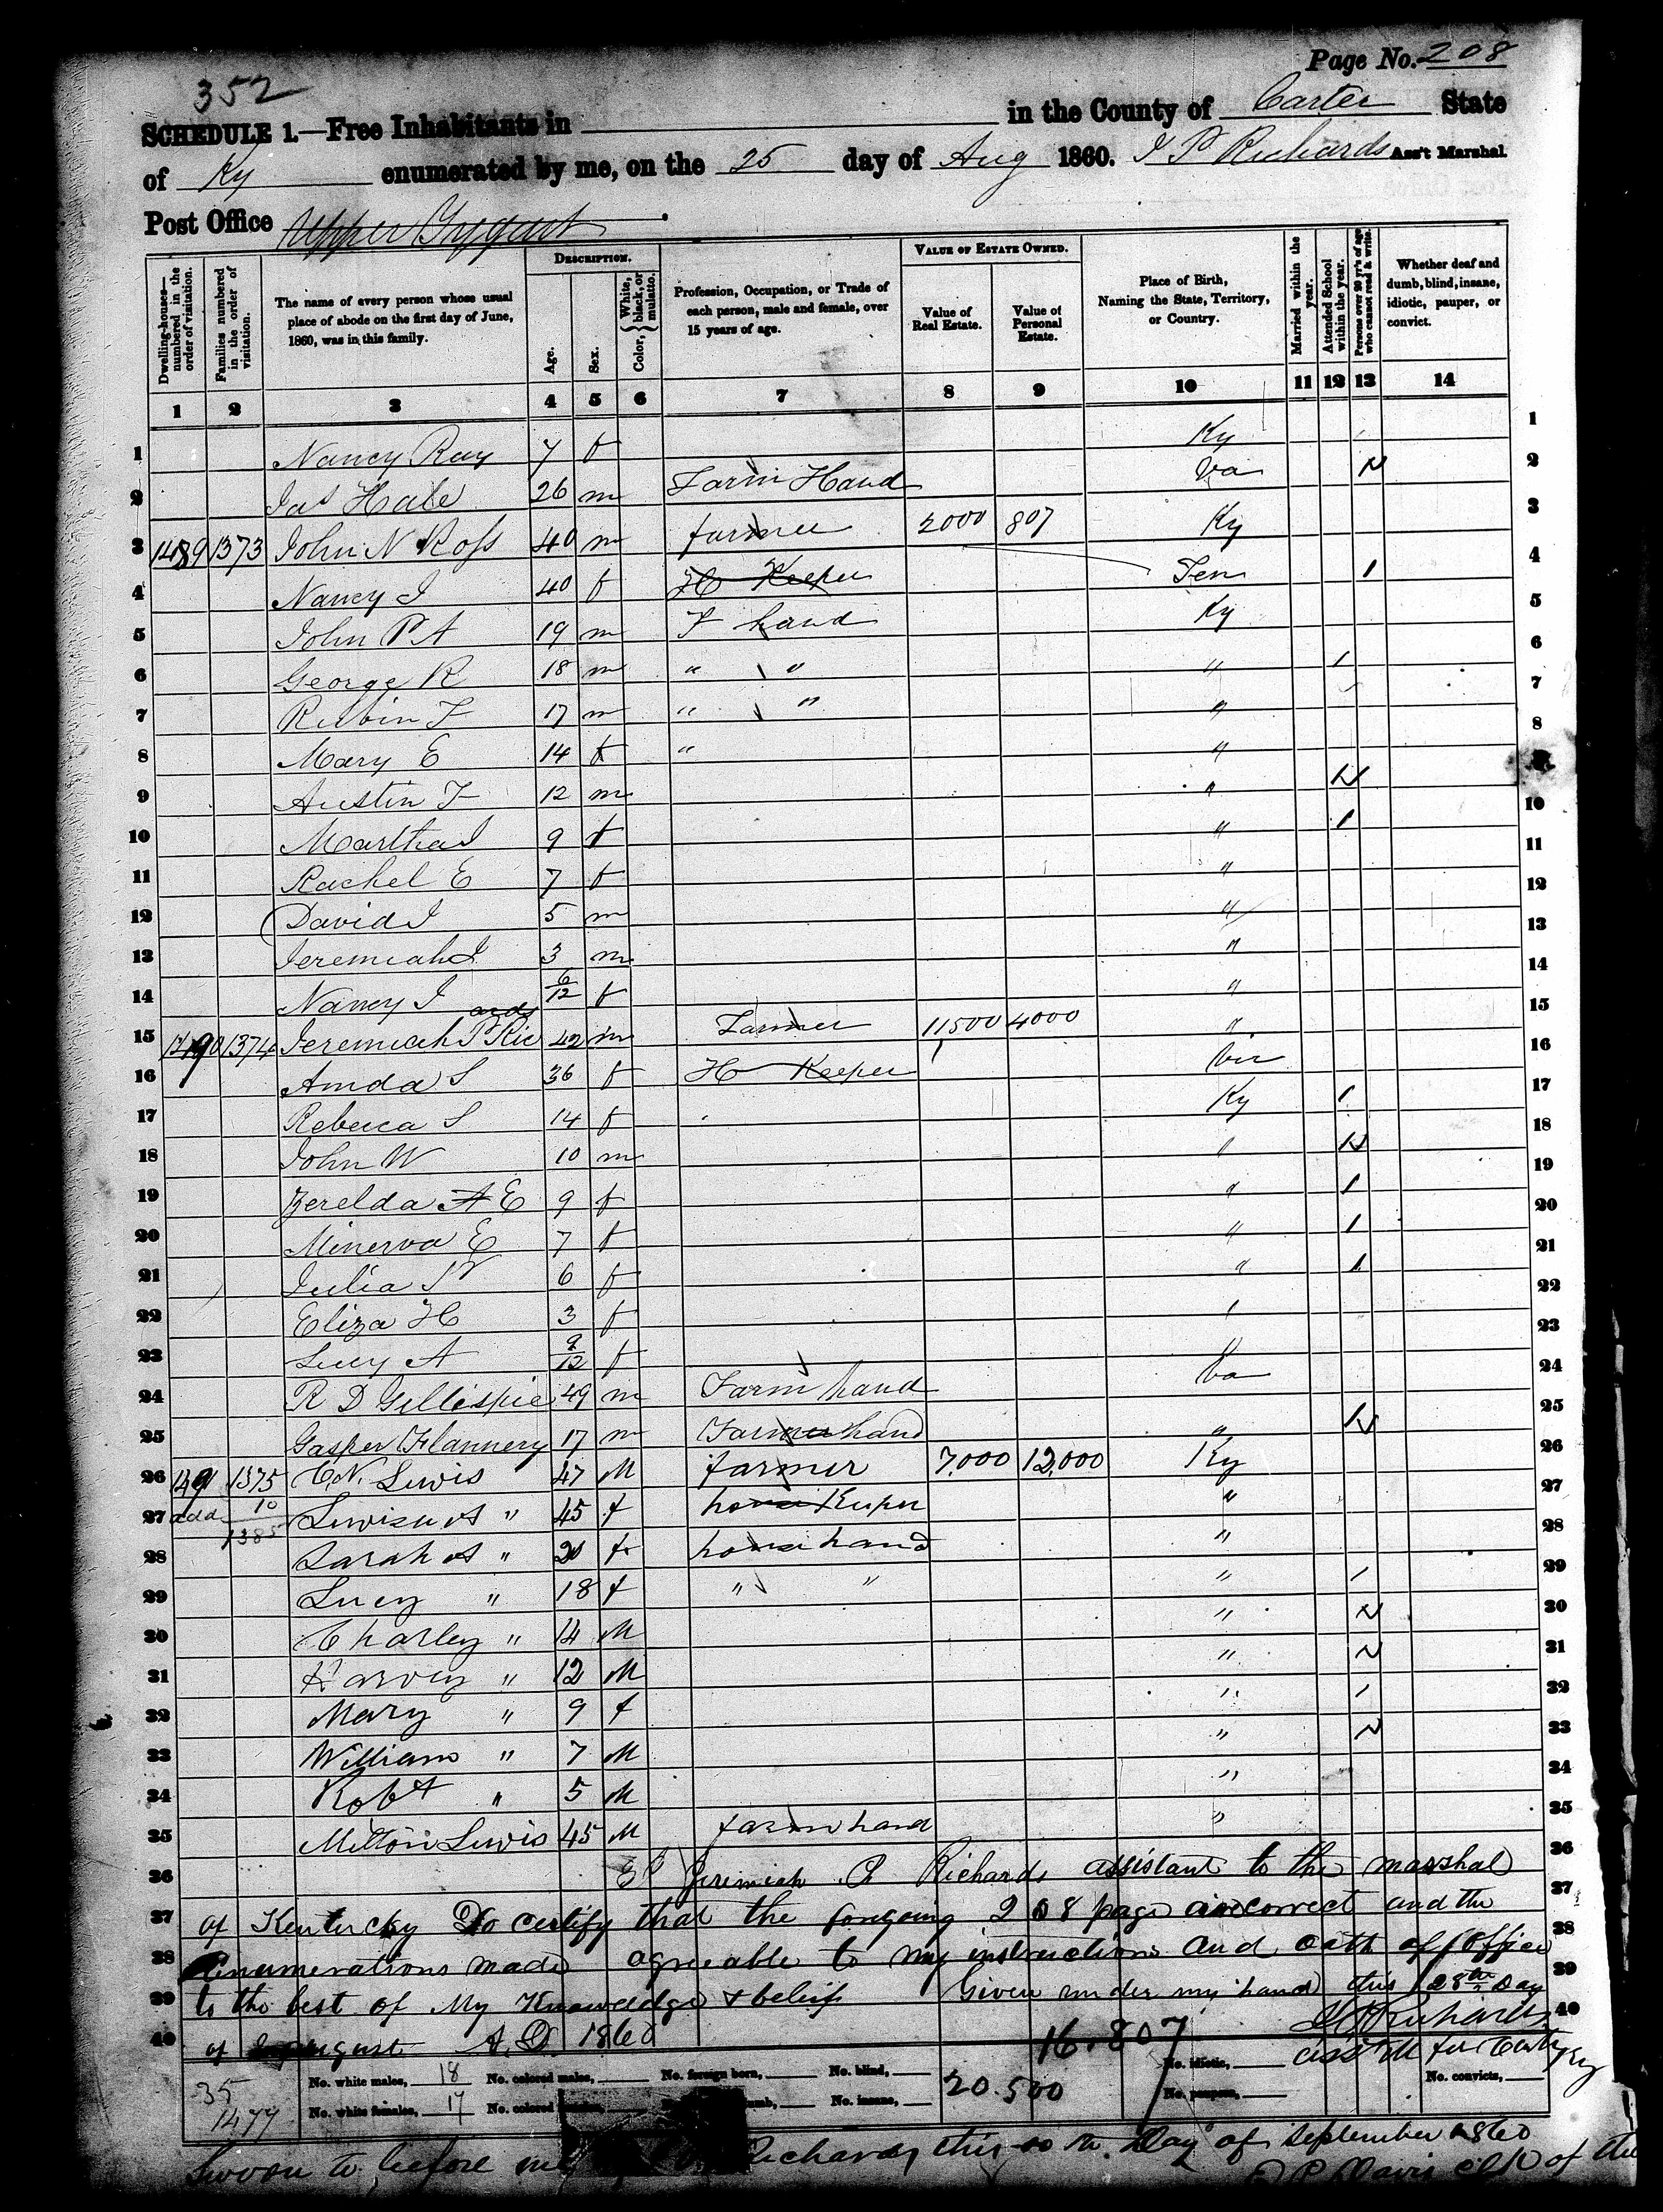 Page No. 208
352
SCHEDULE 1.—Free Inhabitants in in the County of Carter State
of Ky enumerated by me, on the 25 day of Aug 1860. J P Richards Ass't Marshal
Post Office Upper
Dwelling-houses—numbered in the order of visitation.
Families numbered in the order of visitation.
The name of every person whose usual place of abode on the first day of June, 1860, was in this family.
DESCRIPTION.
Age.
Sex.
Color, { White, black, or mulatto.
Profession, Occupation, or Trade of each person, male and female, over 15 years of age.
VALUE OF ESTATE OWNED.
Value of Real Estate.
Value of Personal Estate.
Place of Birth, Naming the State, Territory, or Country.
Married within the year.
Attended School within the year.
Persons over 20 y'rs of age who cannot read & write.
Whether deaf and dumb, blind, insane, idiotic, pauper, or convict.
1 2 3 4 5 6 7 8 9 10 11 12 13 14
1 Nancy Ray 7 f Ky 1
2 Jas Hale 26 m Farm Hand Va 2
3 1489 1373 John N Ross 40 m farmer 2000 807 Ky 3
4 Nancy J 40 f H Keeper Ten 1 4
5 John P A 19 m F hand Ky 5
6 George R 18 m " " " 1 6
7 Rubin F 17 m " " " 7
8 Mary E 14 f " " 8
9 Austin F 12 m " 9
10 Martha J 9 f " 1 10
11 Rachel E 7 f " 11
12 David J 5 m " 12
13 Jeremiah J 3 m " 13
14 Nancy J 6/12 f " 14
15 1490 1374 Jeremiah P Richards 42 m Farmer 11500 4000 " 15
16 Amda S 36 f H Keeper Vir 16
17 Rebecca S 14 f Ky 1 17
18 John W 10 m " 18
19 Zerelda A E 9 f " 1 19
20 Minerva E 7 f " 1 20
21 Julia 6 f " 1 21
22 Eliza H 3 f " 22
23 Lucy A 9/12 f 23
24 R D Gillespie 49 m Farm hand Va 24
25 Gasper Flannery 17 m Farmer hand " 25
26 1491 1375 C N. Lewis 47 M farmer 7,000 12,000 Ky 26
27 add 10 A " 45 f house Keeper " 27
1385
28 Sarah A " 20 f house hand " 28
29 Lucy " 18 f " " " 1 29
30 Charley " 14 M " 30
31 Harvey " 12 M " 31
32 Mary " 9 f " 1 32
33 William " 7 M " 33
34 Robt " 5 M " 34
35 Milton Lewis 45 M farm hand " 35
36 Jeremiah P Richards assistant to the marshal 36
37 of Kentucky Do certify that the forgoing 208 pages are correct and the 37
38 Enumerations made agreeable to my instructions and oath of office 38
39 to the best of My Knowledge & belief Given under my hand this 28th Day 39
40 of August A.D. 1860 J P Richards 40
16.807 asst M for Carter Ky
35 No. white males, 18 No. colored males, No. foreign born, No. blind, No. idiotic, No. convicts,
1477 No. white females, 17 No. colored No. insane, 20.500 No. paupers,
Sworn to before me Richards this Day of September 1860
Davis Clk of the